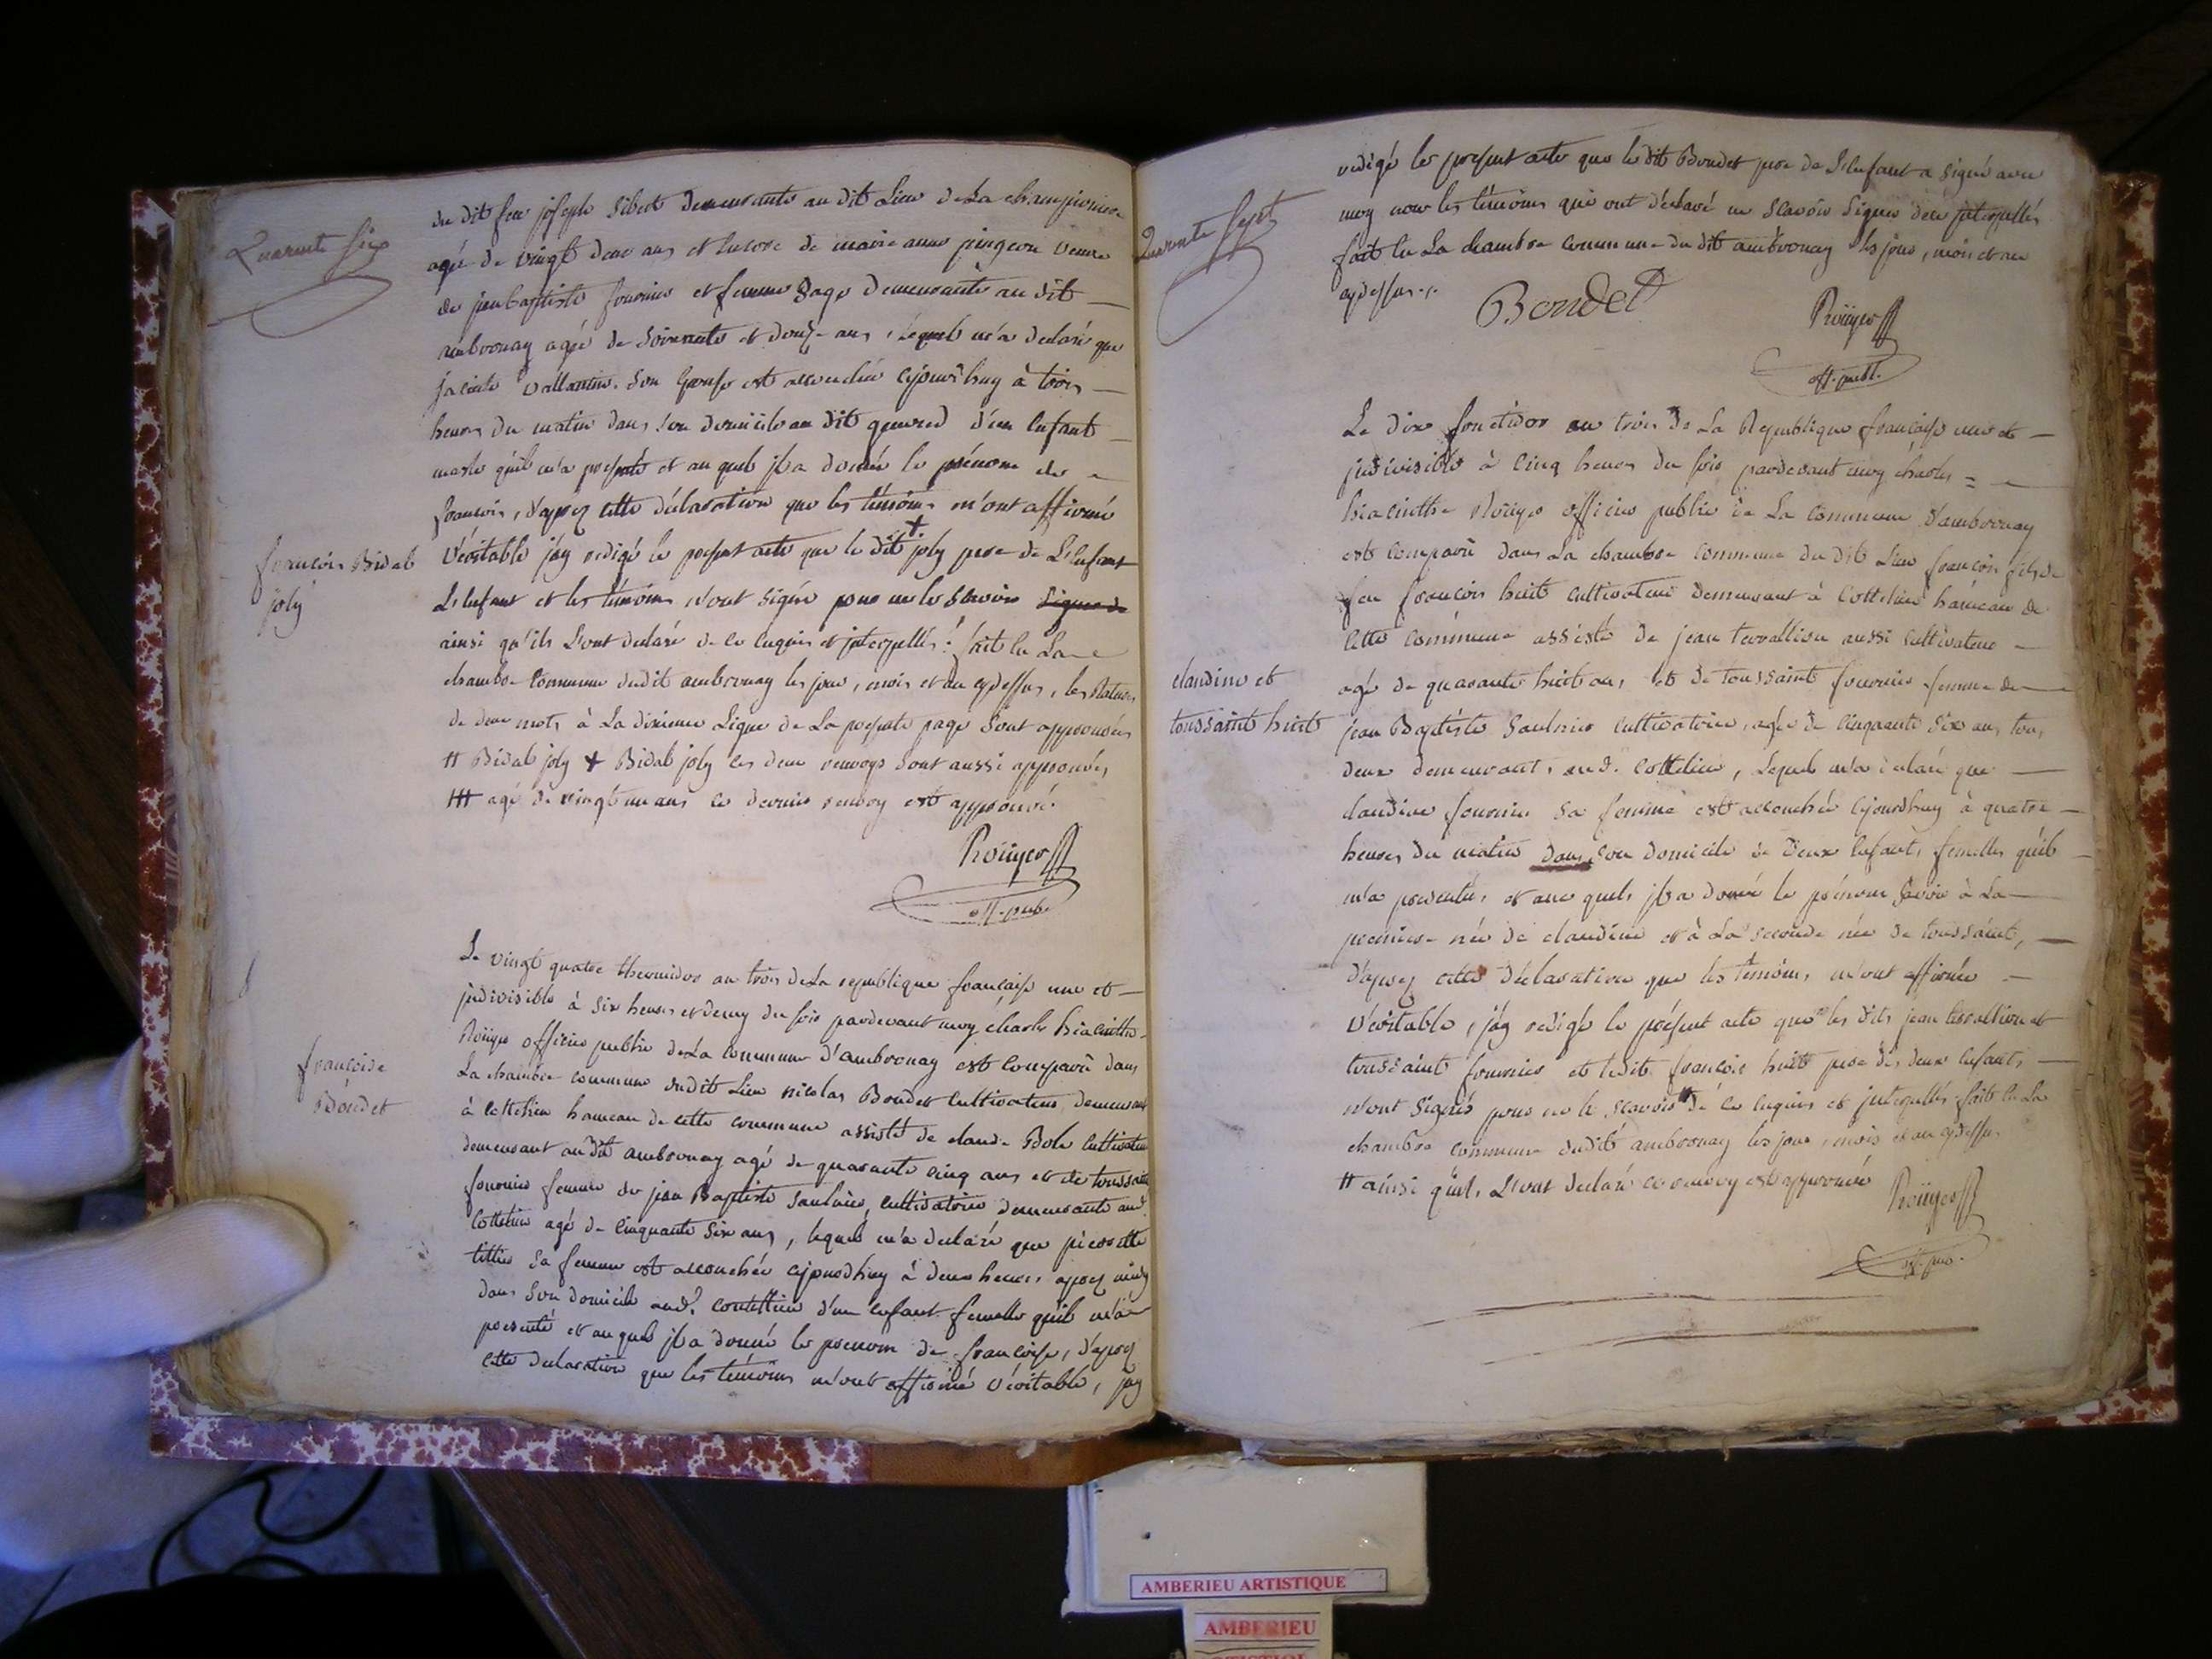 Quarante six
du dit feu joseph Sibert demeurante au dit Lieu de La championiere
agée de vingt deux ans et encore de marie anne pingeon veuve
de jeanbaptiste fournier et femme sage demeurante au dit
ambronay agée de soixante et douze ans, lequel m'a declaré que
jacinte vallantin son epouse est accouchée cejourd'huy à trois
heures du matin dans son domicile au dit d'un enfant
masle qu'il m'a presenté et au quel jl a donné le prénom de
francois, d'aprez cette déclaration que les témoins m'ont affirmé
françois Bidal
joly
véritable j'ay redigé le present acte que le dit + joly pere de L'enfant
L'enfant et les témoins n'ont signé pour ne le scavoir signer de
ainsi qu'ils L'ont declaré de ce enquis et jnterpellés: fait en La
chambre commune dudit ambronay les jour, mois et an cydessus, les ratures
de deux mots à La dixieme Ligne de La presente page sont approuvées
# Bidal joly + Bidal joly ces deux renvoys sont aussi approuvés
agé de vingt un ans ce dernier renvoy est approuvé.
Roüyer
off. pub.
françoise
Bondet
Le vingt quatre thermidor an trois de La republique française une et
jndivisible à six heures et demy du soir pardevant moy charles hiacinthe
Roüyer officier public de La commune d'ambronay est comparû dans
La chambre commune dudit Lieu nicolas Bondet cultivateur demeurant
à cottelieu hameau de cette commune assisté de claude Bole cultivateur
demeurant au dit ambronay agé de quarante cinq ans et de toussaint
fournier femme de jean Baptiste Saulnier, cultivatrice demeurante aud.
Cottelieu agé de cinquante six ans, lequel m'a declaré que pierrette
tittier sa femme est accouchée cejourdhuy à deux heures aprez midy
dans son domicile aud. cottellieu d'un enfant femelle qu'il m'a
presenté et au quel jl a donné le prenom de françoise, d'aprez
cette declaration que les témoins m'ont affirmé véritable, jay
Quarante Sept
redigé le present acte que le dit Bondet pere de L'enfant a signé avec
moy non les témoins qui ont déclaré ne scavoir signer de ce jnterpellés
fait en La chambre commune du dit ambronay les jour, mois et an
cydessus ./.
Bondet
Roüyer
off. publ.
Le dix fructidor an trois de La Republique française une et
jndivisible à cinq heures du soir pardevant moy charles =
hiacinthe Roüyer officier public de La commune d'ambronay
est comparû dans La chambre commune du dit Lieu françois fils de
feu françois huit cultivateur demeurant à Cottelieu hameau de
cette commune assisté de jean tervallion aussi cultivateur
claudine et
toussaint huit
agé de quarante huit ans, et de toussaint fournier femme de
jean Baptiste Saulnier cultivatrice, agée de cinquante six ans, tous
deux demeurants aud. cottelieu, Lequel m'a declaré que
claudine fournier sa femme est accouchée cejourdhuy à quatre
heures du matin dans son domicile de deux enfants femelles qu'il
m'a presentés et aux quels jl a donné le prénom savoir à La
premiere née de claudine et à La seconde née de toussaint,
d'aprez cette déclaration que les témoins m'ont affirmée
véritable, j'ay redigé le présent acte que les dits jean tervallion et
toussaint fournier et ledit françois huit pere des deux enfants
n'ont signés pour ne le scavoir # de ce enquis et jnterpellés fait en La
chambre commune dudit ambronay les jour, mois et an cydessus
# ainsi qu'ils L'ont declaré ce renvoy est approuvé
Roüyer
off. pub.
AMBERIEU ARTISTIQUE
AMBERIEU